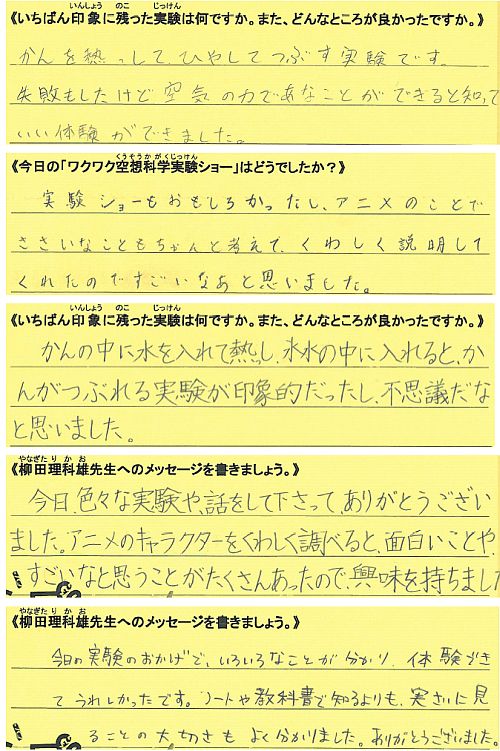 いんしょう のこ じっけん
《いちばん印象に残った実験は何ですか。また、どんなところが良かったですか。》
かんを熱っして、ひやしてつぶす実験です。
失敗もしたけど空気の力であなことができると知って
いい体験ができました。
くうそうかがくじっけん
《今日の「ワクワク空想科学実験ショー」はどうでしたか？》
実験ショーもおもしろかったし、アニメのことで
ささいなこともちゃんと考えて、くわしく説明して
くれたのですごいなあと思いました。
いんしょう のこ じっけん
《いちばん印象に残った実験は何ですか。また、どんなところが良かったですか。》
かんの中に水を入れて熱っし、氷水の中に入れると、か
んがつぶれる実験が印象的だったし、不思議だな
と思いました。
やなぎた りかお
《柳田理科雄先生へのメッセージを書きましょう。》
今日、色々な実験や、話をして下さって、ありがとうござい
ました。アニメのキャラクターをくわしく調べると、面白いことや、
すごいなと思うことがたくさんあったので、興味を持ちまし
やなぎた りかお
《柳田理科雄先生へのメッセージを書きましょう。》
今日の実験のおかげで、いろいろなことが分かり、体験でき
てうれしかったです。ノートや教科書で知るよりも、実さいに見
ることの大切さもよく分かりました。ありがとうございました。